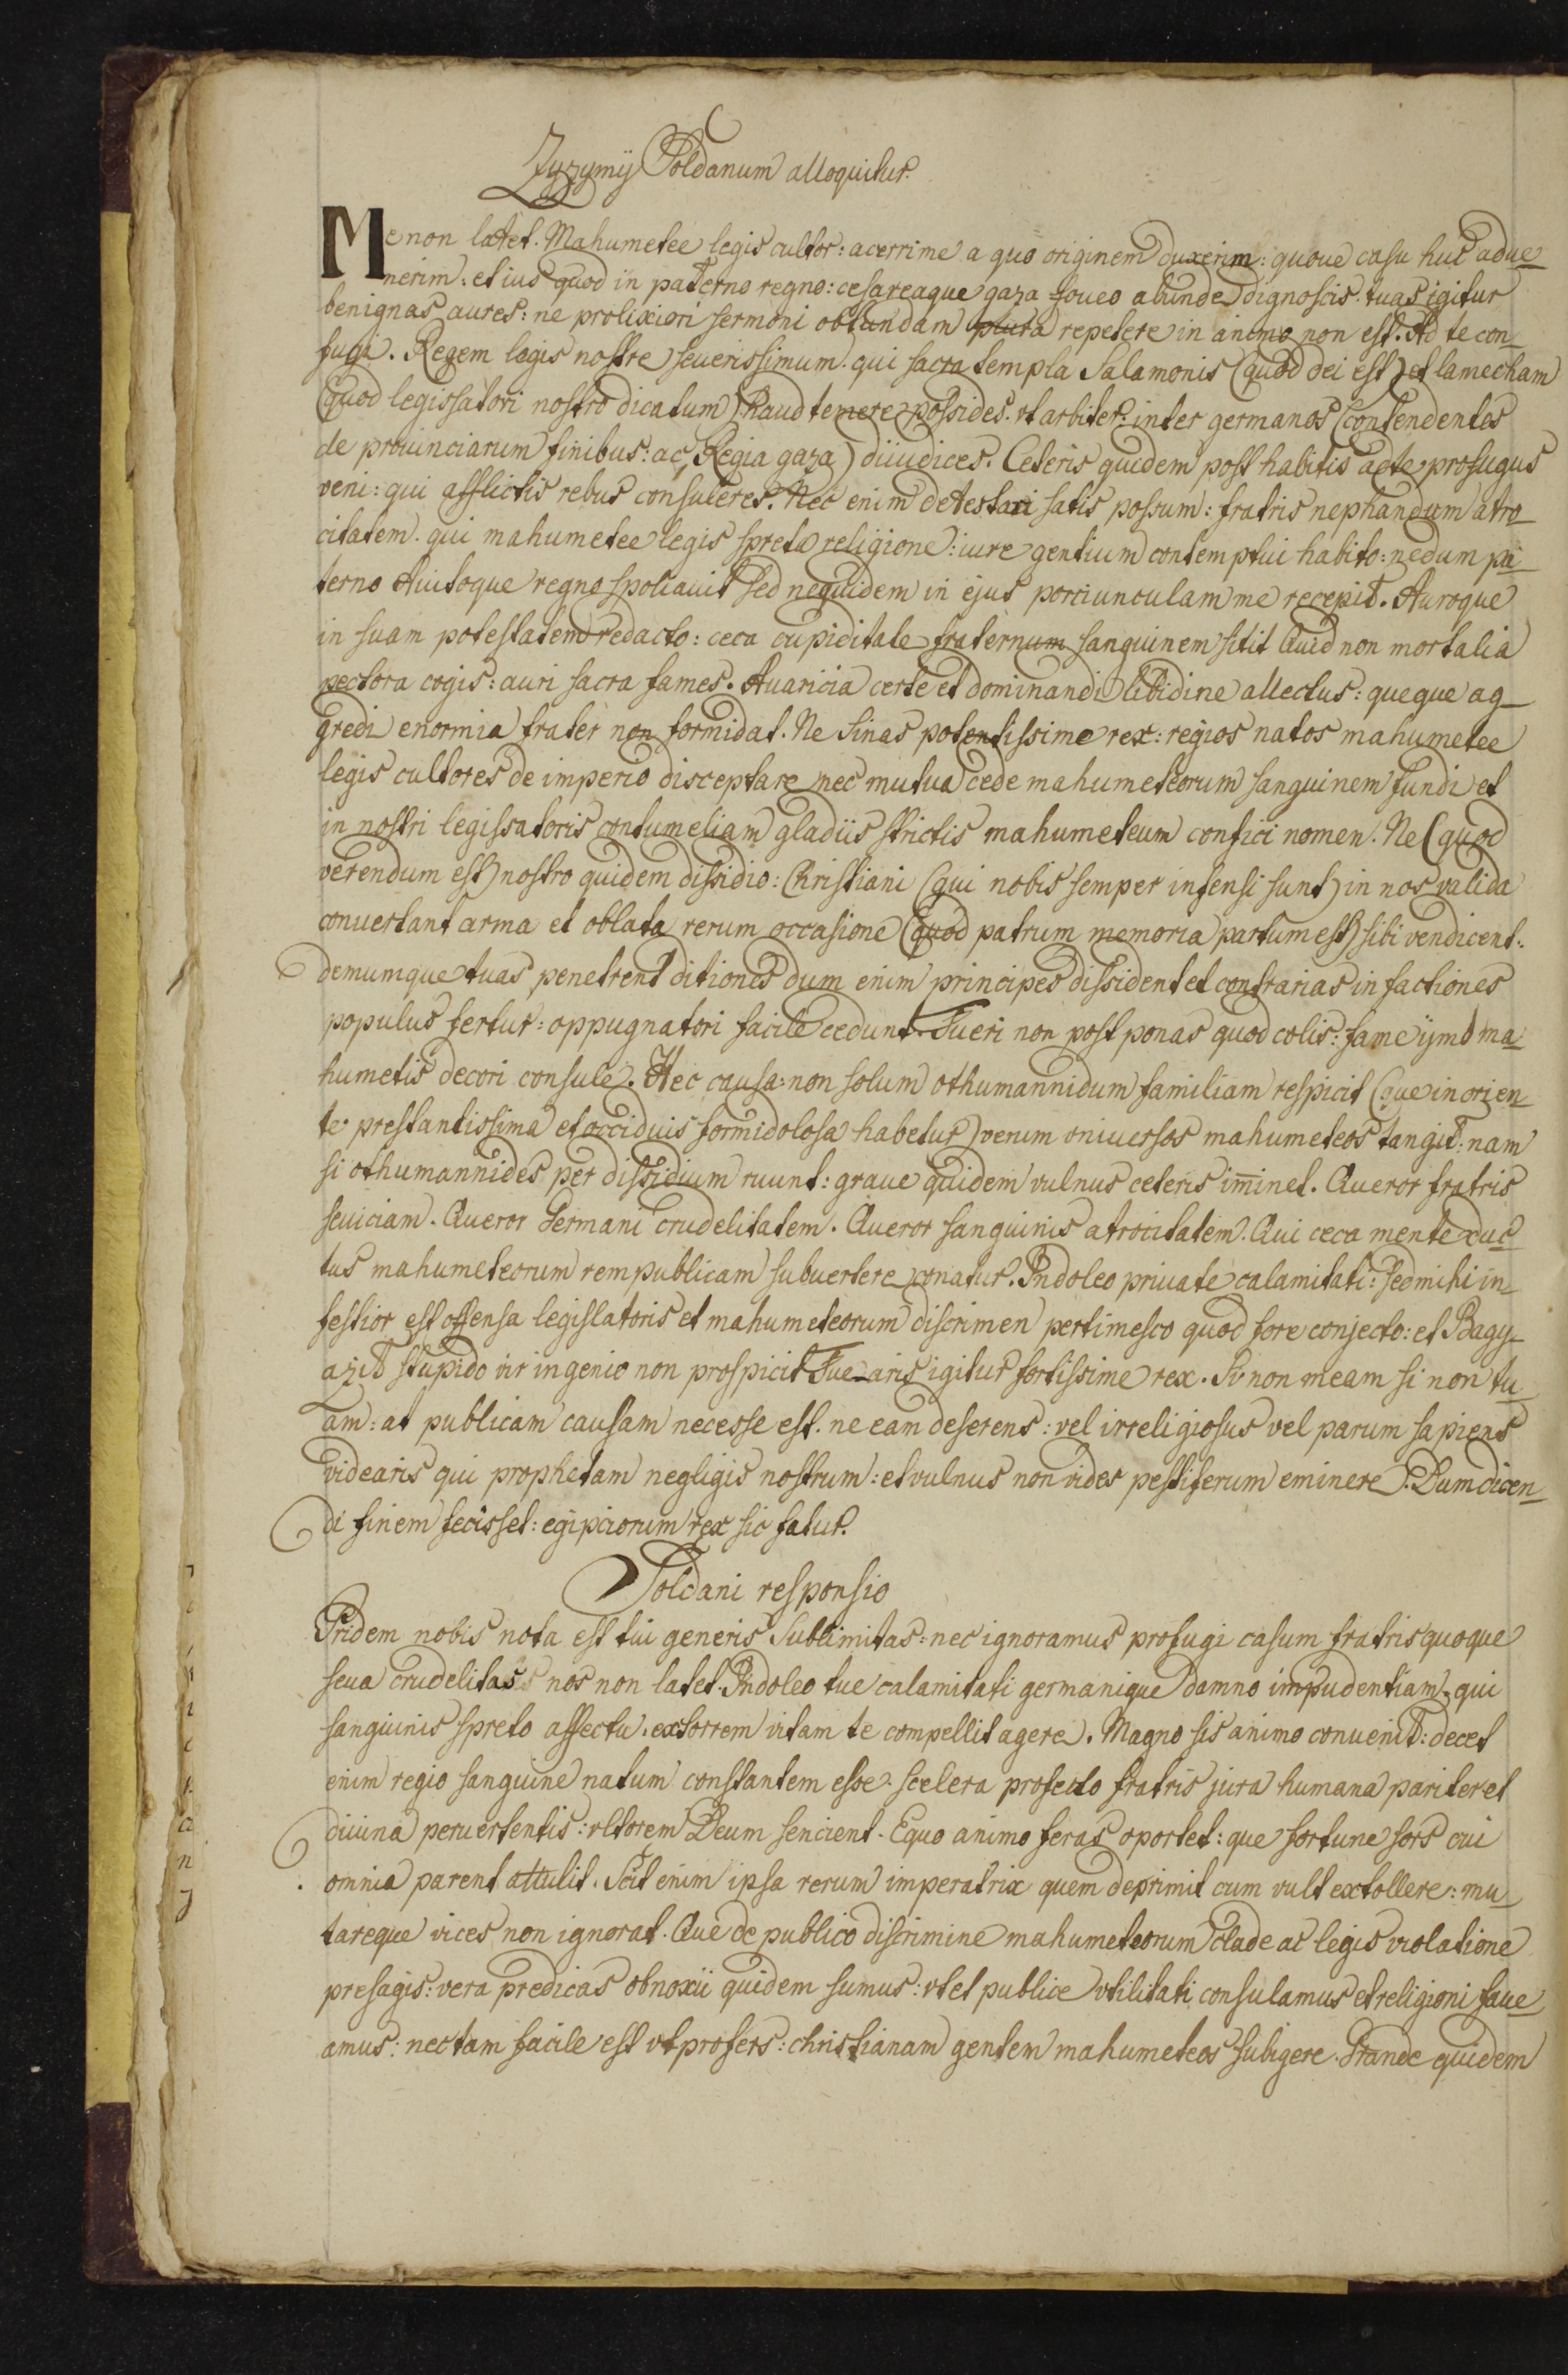 Zyzymij Soldanum alloquitur.
Me non latet. Mahumetee legis cultor: acerrime a quo originem duxerim: quoue casu huc adue-
nerim: et ius quod in paterno regno: cesareaque gaza foueo abunde dignoscis. tuas igitur
benignas aures: ne prolixiori sermoni obtundam plura repetere in animo non est. Ad te con-
fugi. Regem legis nostre seuerissimum. qui sacra templa Salamonis (quod dei est) et lamecham
(quod legissatori nostro dicatum) haud temere possides. vt arbiter: inter germanos (contendentes
de prouinciarum finibus: ac Regia gaza) diiudices. Ceteris quidem post habitis ad te profugus
veni: qui afflictis rebus consuleres. Nec enim detestari satis possum: fratris nephandum atro-
citatem. qui mahumetee legis spreta religione: iure gentium contemptui habito: nedum pa-
terno Auitoque regno spoliauit sed nequidem in ejus porciunculam me recepit. Auroque
in suam potestatem redacto: ceca cupiditate fraternum sanguinem sitit Quid non mortalia
pectora cogis: auri sacra fames. Auaricia certe et dominandi libidine allectus: queque ag-
gredi enormia frater non formidat. Ne sinas potentissime rex: regios natos mahumetee
legis cultores de imperio disceptare nec mutua cede mahumeteorum sanguinem fundi et
in nostri legissatoris contumeliam gladiis strictis mahumeteum confici nomen. Ne (quod
verendum est) nostro quidem dissidio: Christiani (qui nobis semper infensi sunt) in nos valida
conuertant arma et oblata rerum occasione (quod patrum memoria partum est) sibi vendicent:
demumque tuas penetrent ditiones dum enim principes dissident et contrarias in factiones
populus fertur: oppugnatori facile cedunt. Tueri non post ponas quod colis: fame ijmo ma-
humetis decori consule. Hec causa: non solum othumannidum familiam respicit (que in orien-
te prestantissima et occiduis formidolosa habetur) verum vniuersos mahumeteos tangit: nam
si othumannides per dissidium ruunt: graue quidem vulnus ceteris im̄inet. Queror fratris
seuiciam. Queror Germani crudelitatem. Queror sanguinis atrocitatem. Qui ceca mente duc-
tus mahumeteorum rempublicam subuertere conatur. Indoleo priuate calamitati: sed mihi in-
festior est offensa legislatoris et mahumeteorum discrimen pertimesco quod fore conjecto: et Bagy-
azit stupido vir ingenio non prospicit Tue-aris igitur fortissime rex. Si non meam si non tu-
am: at publicam causam necesse est. ne eam deserens: vel irreligiosus vel parum sapiens
videaris qui prophetam negligis nostrum: et vulnus non vides pestiferum eminere. Dum dicen-
di finem fecisset: egipciorum rex sic fatur.
Soldani responsio
Pridem nobis nota est tui generis Sublimitas: nec ignoramus profugi casum fratris quoque
seua crudelitas nos non latet. Indoleo tue calamitati germanique damno impudentiam, qui
sanguinis spreto affectu. extorrem vitam te compellit agere. Magno sis animo conuenit: decet
enim regio sanguine natum constantem esse. scelera profecto fratris jura humana pariter et
diuina peruertentis: vltorem Deum sencient. Equo animo feras oportet: que fortune sors cui
omnia parent attulit. Scit enim ipsa rerum imperatrix quem deprimit cum vult extollere: mu-
tareque vices non ignorat. Que de publico discrimine mahumeteorum clade ac legis violatione
presagis: vera predicas obnoxii quidem sumus: vt et publice vtilitati consulamus et religioni faue-
amus: nec tam facile est vt profers: christianam gentem mahumeteos subigere. Grande quidem